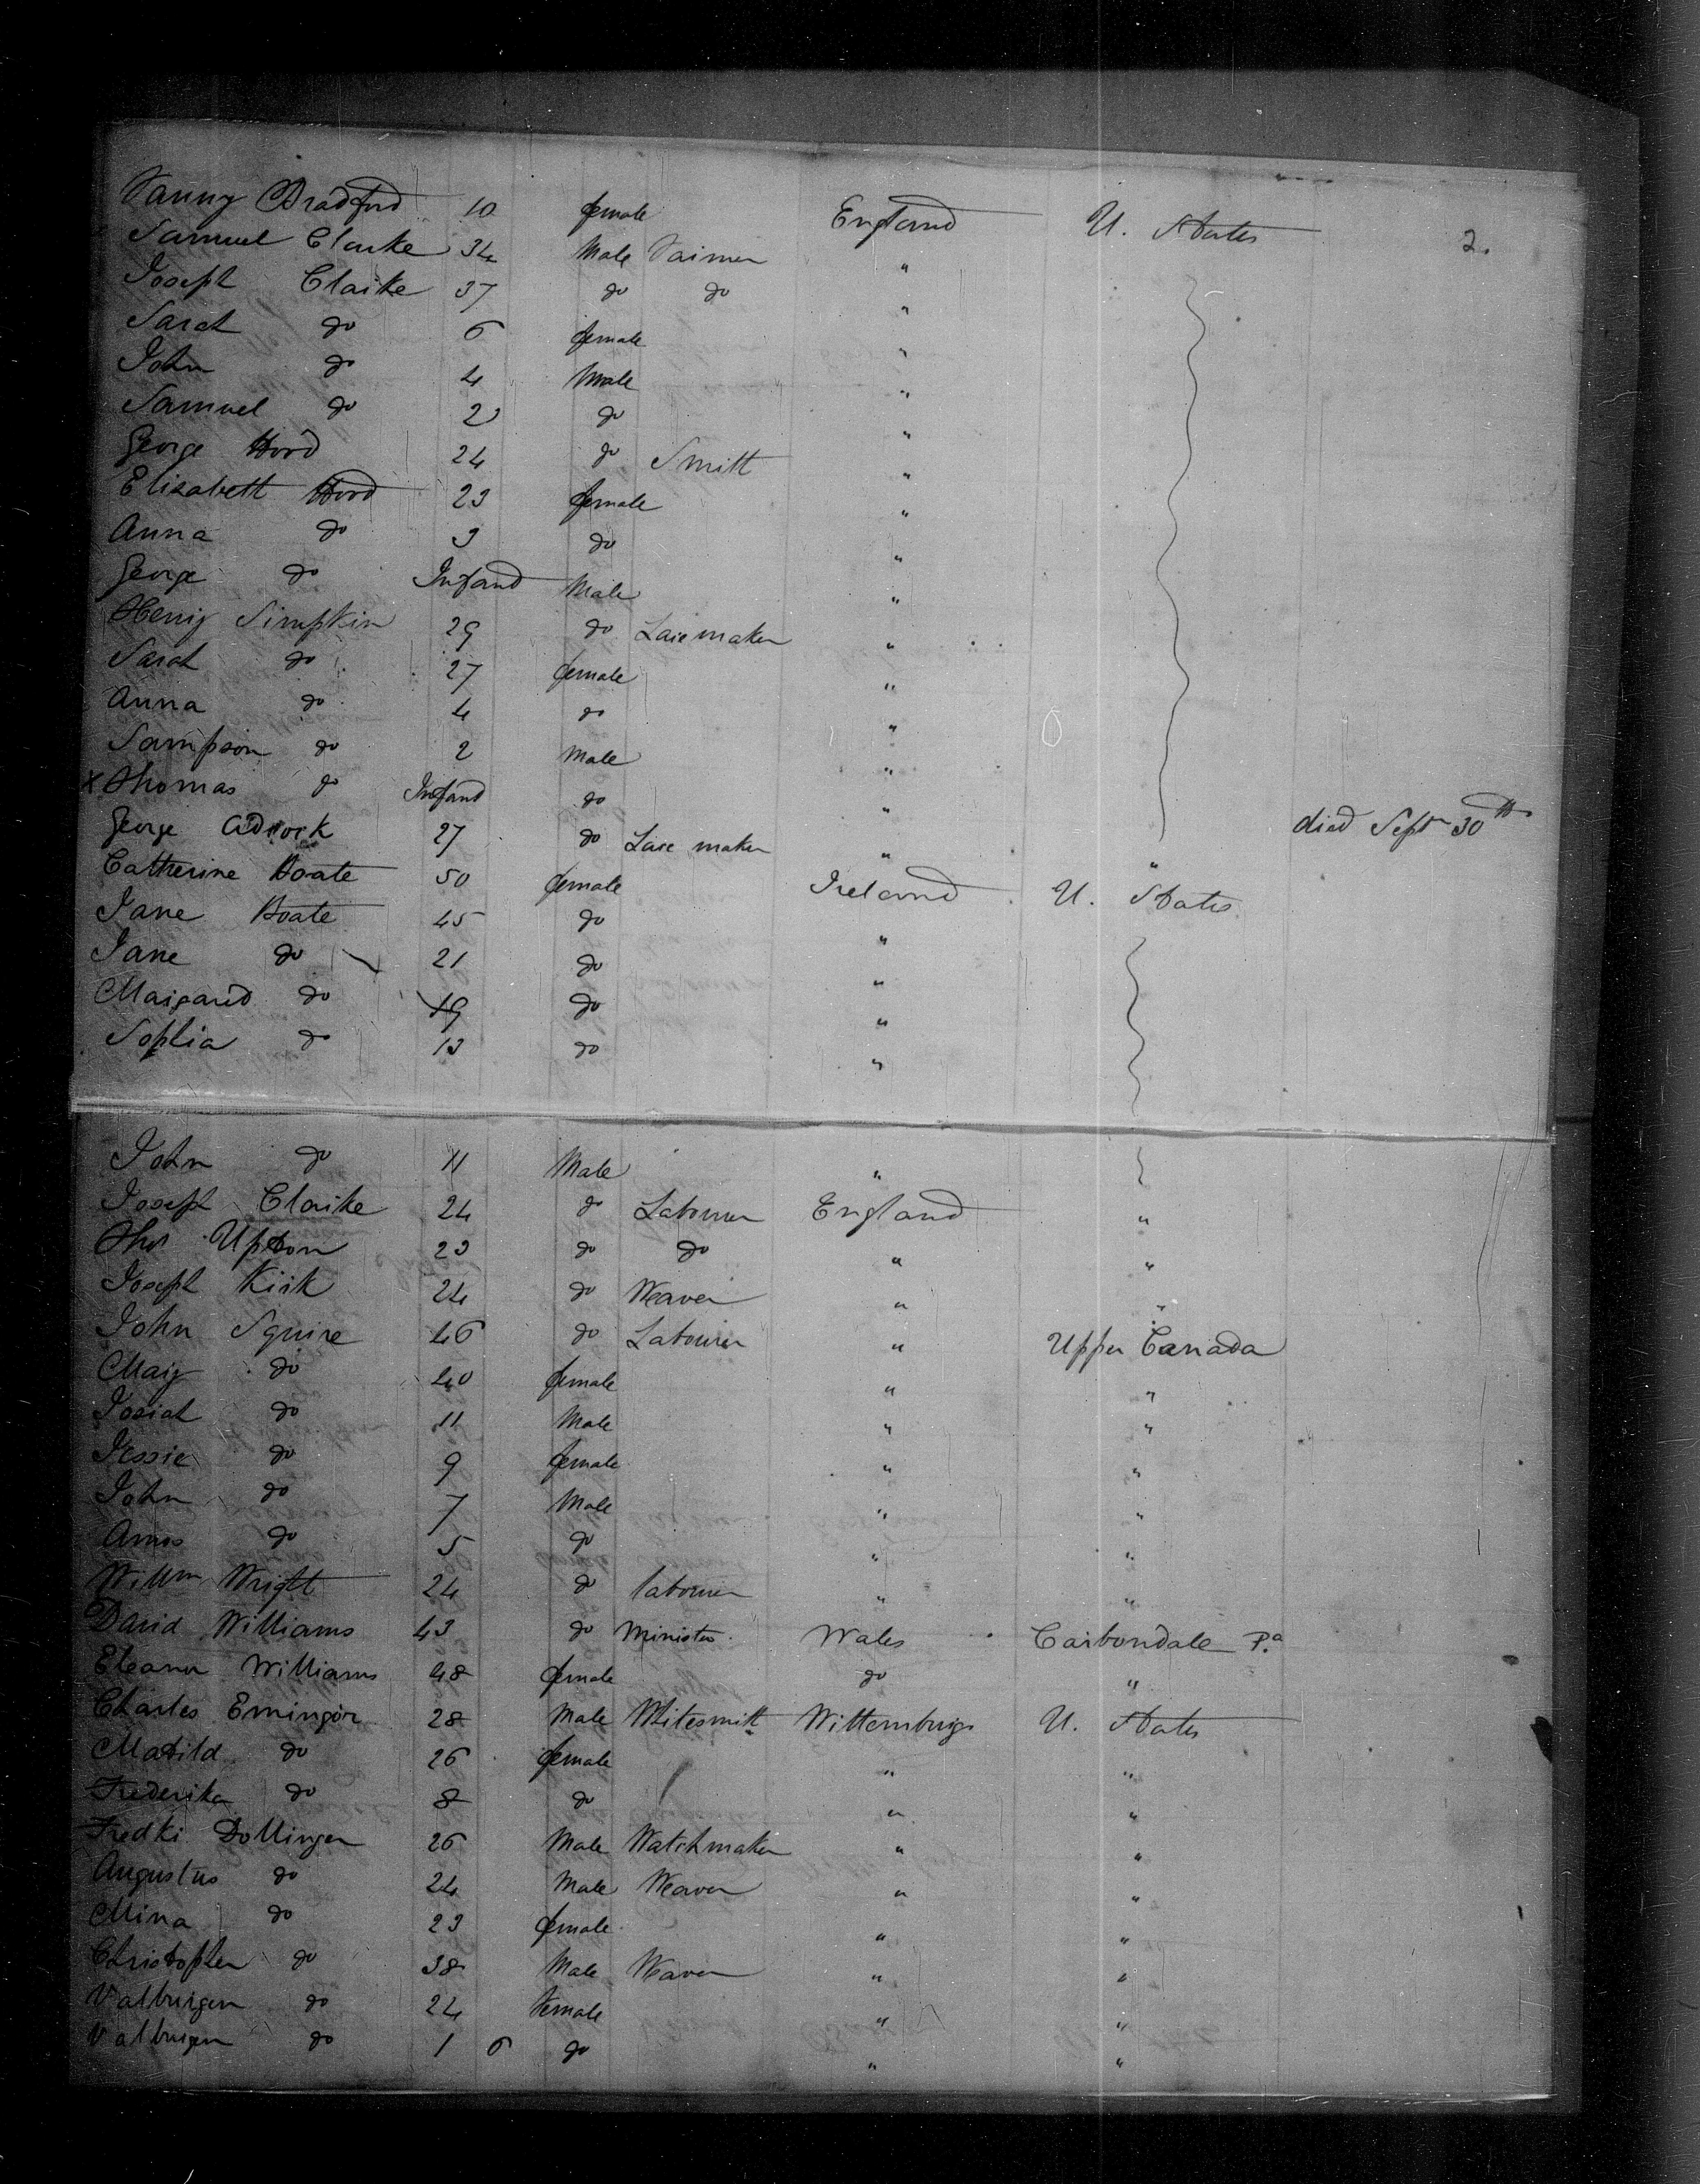 Fanny Bradford 10 female England U. States 2.
Samuel Clarke 34 Male Farmer "
Joseph Clarke 37 do do "
Sarah do 6 female "
John do 4 Male "
Samuel do 2 do "
George Hord 24 do Smith "
Elizabeth Hord 23 female "
Anna do 3 do "
George do Infand Male "
Henry Simpkin 29 do Lacemaker "
Sarah do 27 female "
Anna do 4 do "
Sampson do 2 Male "
x Thomas do Infand do " died Sept 30th
George Adcock 27 do Lace maker " "
Catherine Hoate 50 female Ireland U. States
Jane Hoate 45 do "
Jane do 21 do "
Margared do 19 do "
Sophia do 13 do "
John do 11 Male "
Joseph Clarke 24 do Labourer England "
Thos Upton 23 do do " "
Joseph Kirk 24 do Weaver " "
John Squire 46 do Labourer " Upper Canada
Mary do 40 female " "
Josiah do 11 Male " "
Jessie do 9 female " "
John do 7 Male " "
Amos do 5 do " "
Willm Wright 24 do labourer " "
David Williams 43 do Minister Wales Carbondale Pa
Eleanor Williams 48 female do "
Charles Emingör 28 Male Whitesmith Wittemburgs U. States
Matild do 26 female " "
Frederika do 8 do " "
Fredki Dollinger 26 Male Watchmaker " "
Augustus do 24 Male Weaver " "
Mina do 23 female " "
Christopher do 38 Male Weaver " "
Valburgen do 24 Female " "
Valburgen do 1 6 do " "